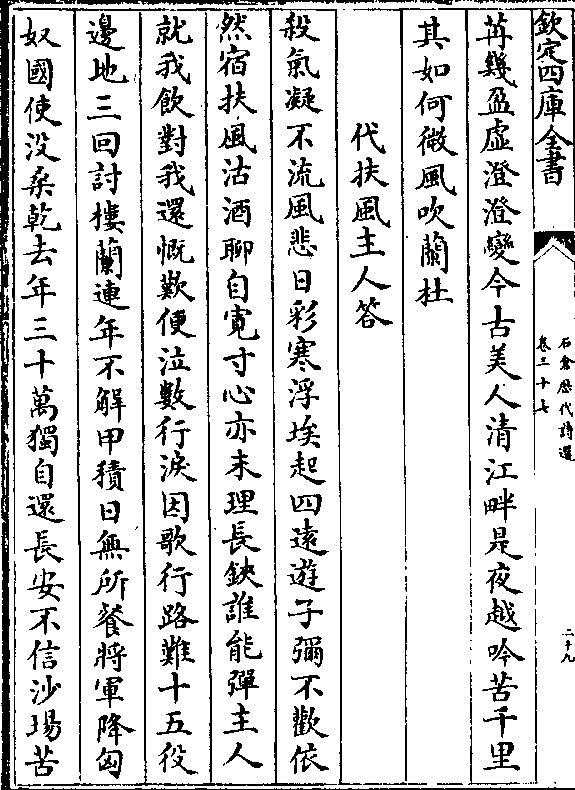 欽定四庫全書
石倉歷代詩選
卷三十七
二十九
苒幾盈虛澄澄變今古美人清江畔是夜越吟苦千里
其如何微風吹蘭杜
代扶風主人答
殺氣凝不流風悲日彩寒浮埃起四遠遊子彌不歡依
然宿扶風沽酒聊自寛寸心亦未理長鋏誰能彈主人
就我飲對我還慨歎便泣數行淚因歌行路難十五役
邊地三回討樓蘭連年不解甲積日無所餐將軍降匈
奴國使没桑乾去年三十萬獨自還長安不信沙場苦